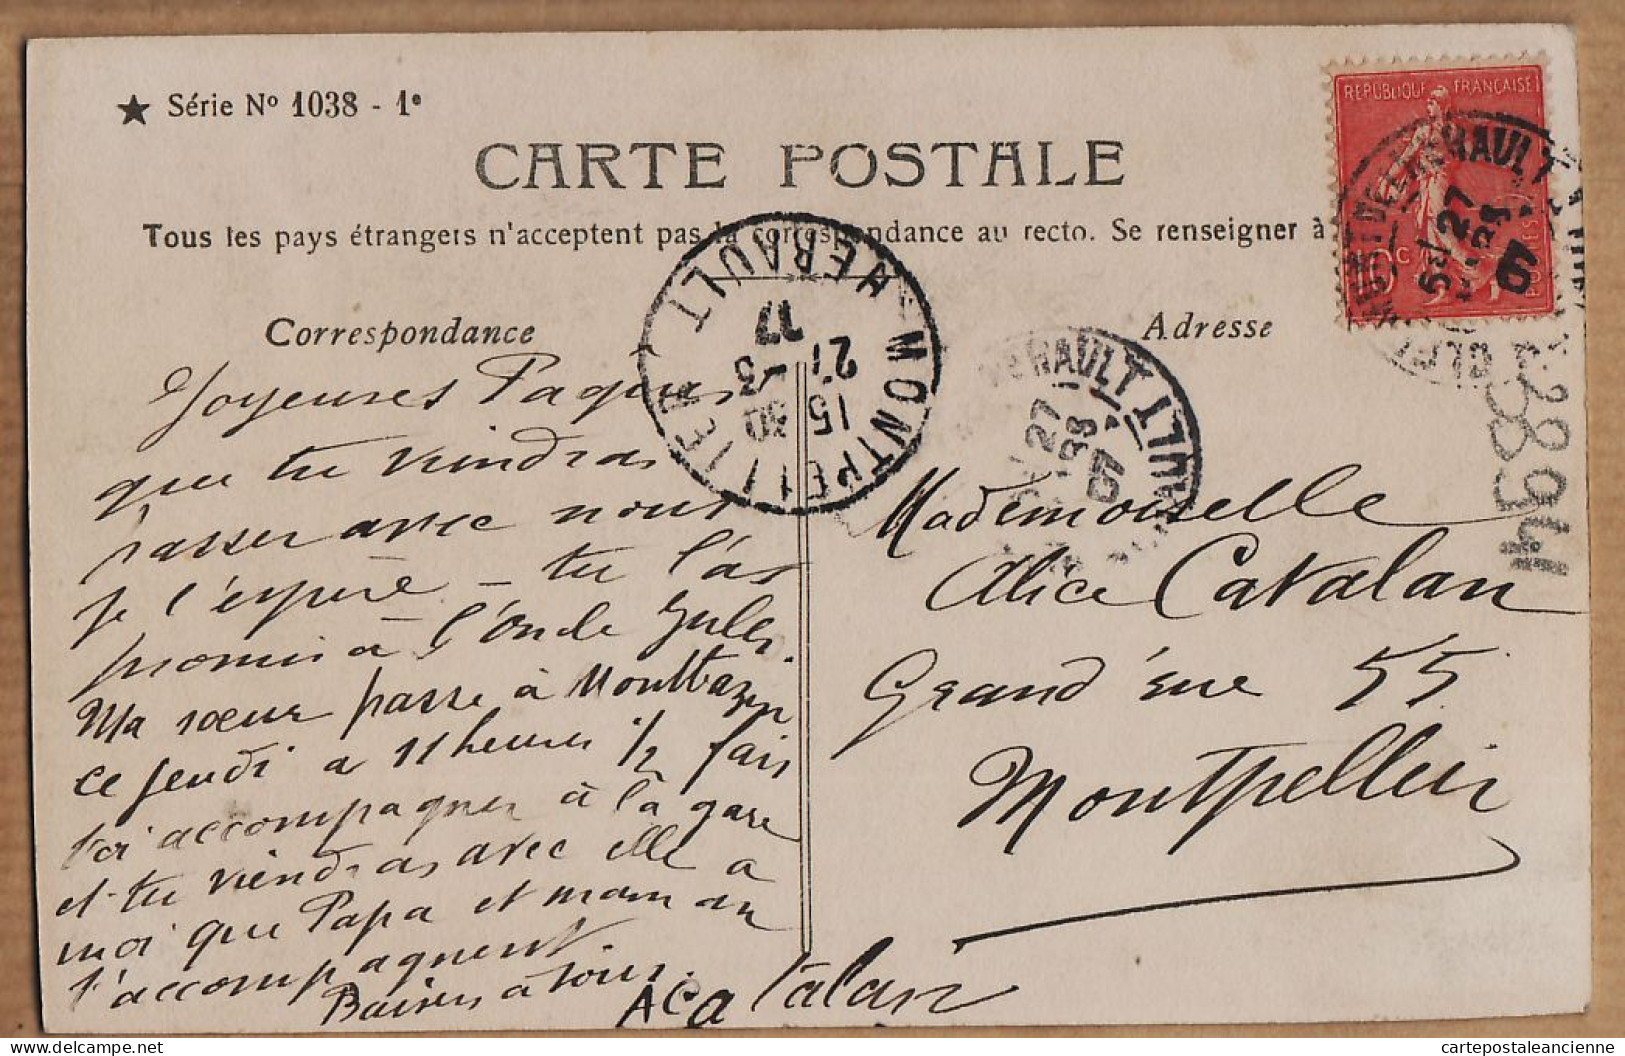 ★ Série Nº 1038 - 1e
CARTE POSTALE
Tous les pays étrangers n'acceptent pas la correspondance au recto. Se renseigner à
Correspondance
Adresse
REPUBLIQUE FRANÇAISE
MONTPELLIER HERAULT
15 30
27 - 3
HERAULT
27
HERAULT
27
Joyeuses Paques
que tu viendras
passer avec nous
je l'espère - tu l'as
promis à l'Oncle Jules.
Ma sœur passe à Montbazin
ce jeudi a 11 heures 1/2 fais
toi accompagner à la gare
et tu viendras avec elle a
moi que Papa et maman
t'accompagnent
Baisers à tous.
A Catalan
Mademoiselle
Alice Catalan
Grand'rue 55
Montpellier
cartepostaleancienne